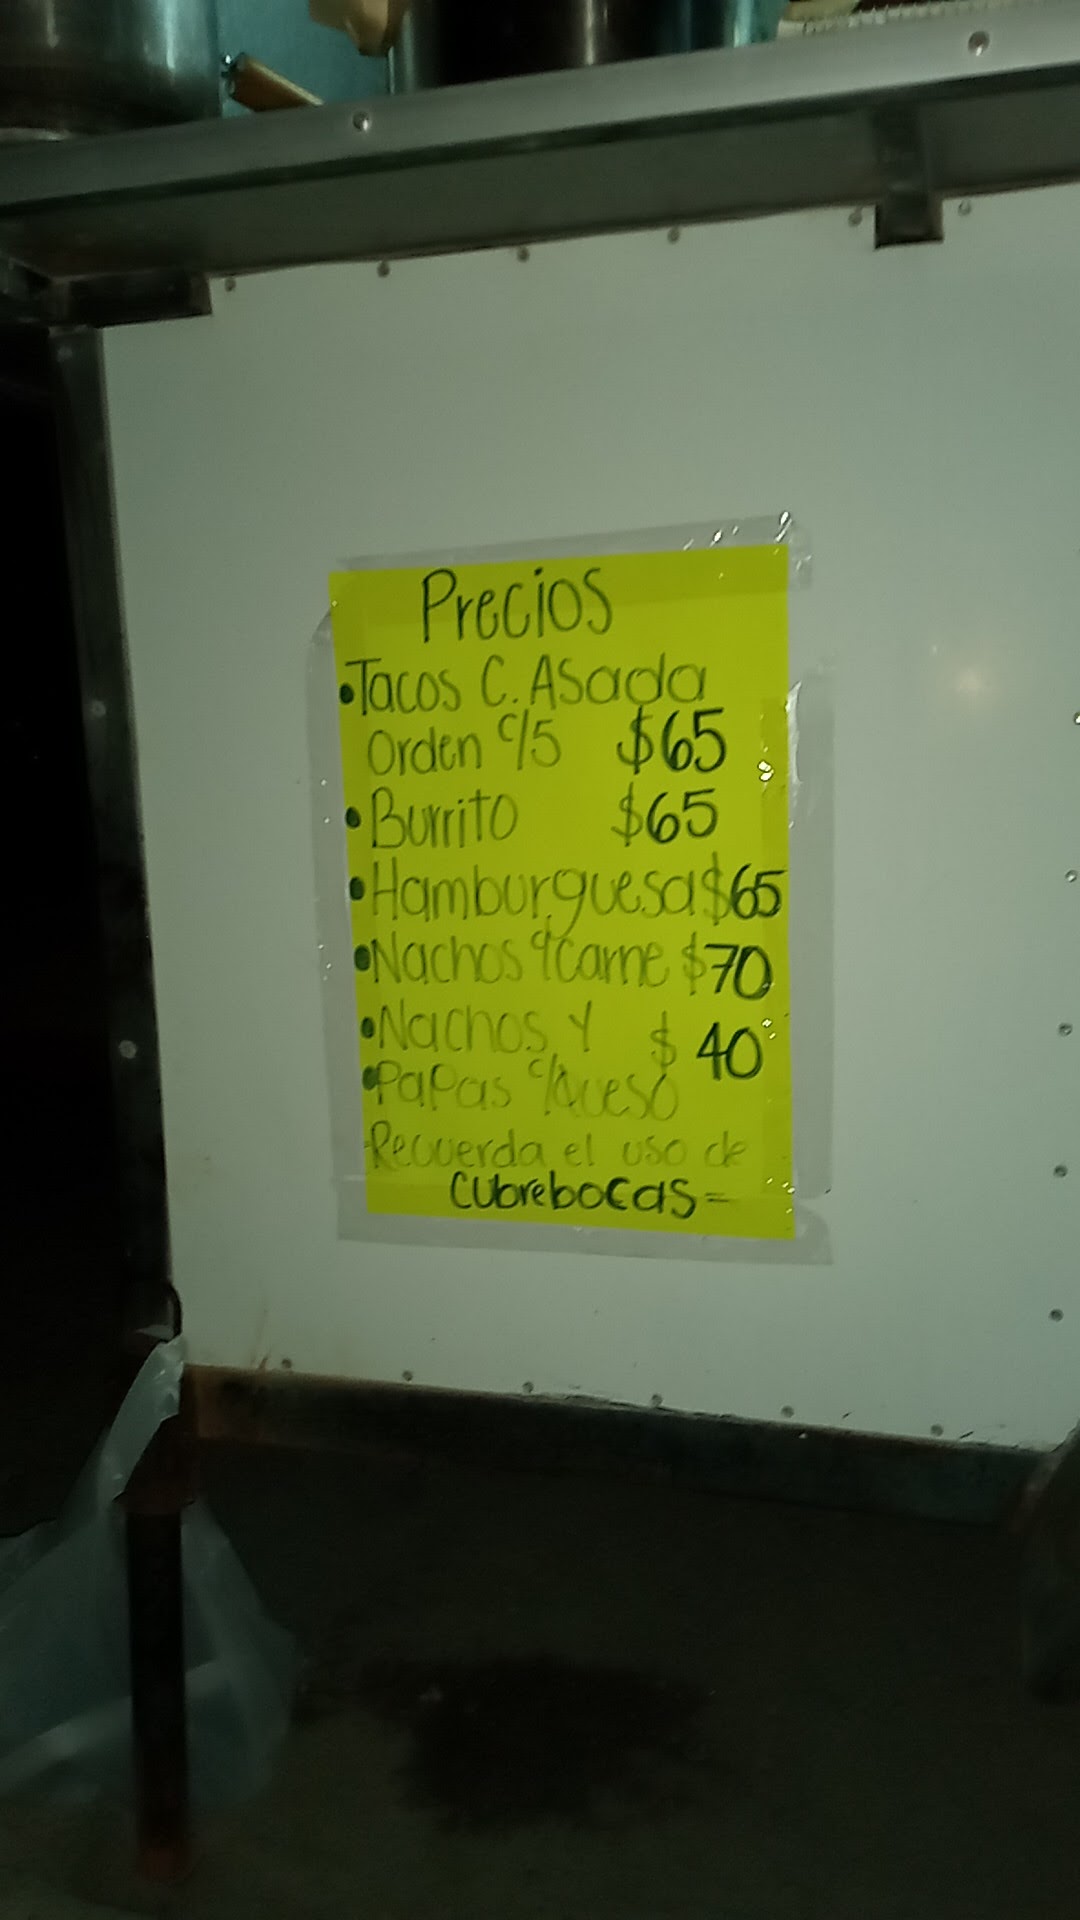 Precios
•Tacos C. Asada
Orden c/5 $65
•Burrito $65
•Hamburguesa $65
•Nachos c/carne $70
•Nachos Y $40
•Papas c/Queso
-Recuerda el uso de
cubrebocas=